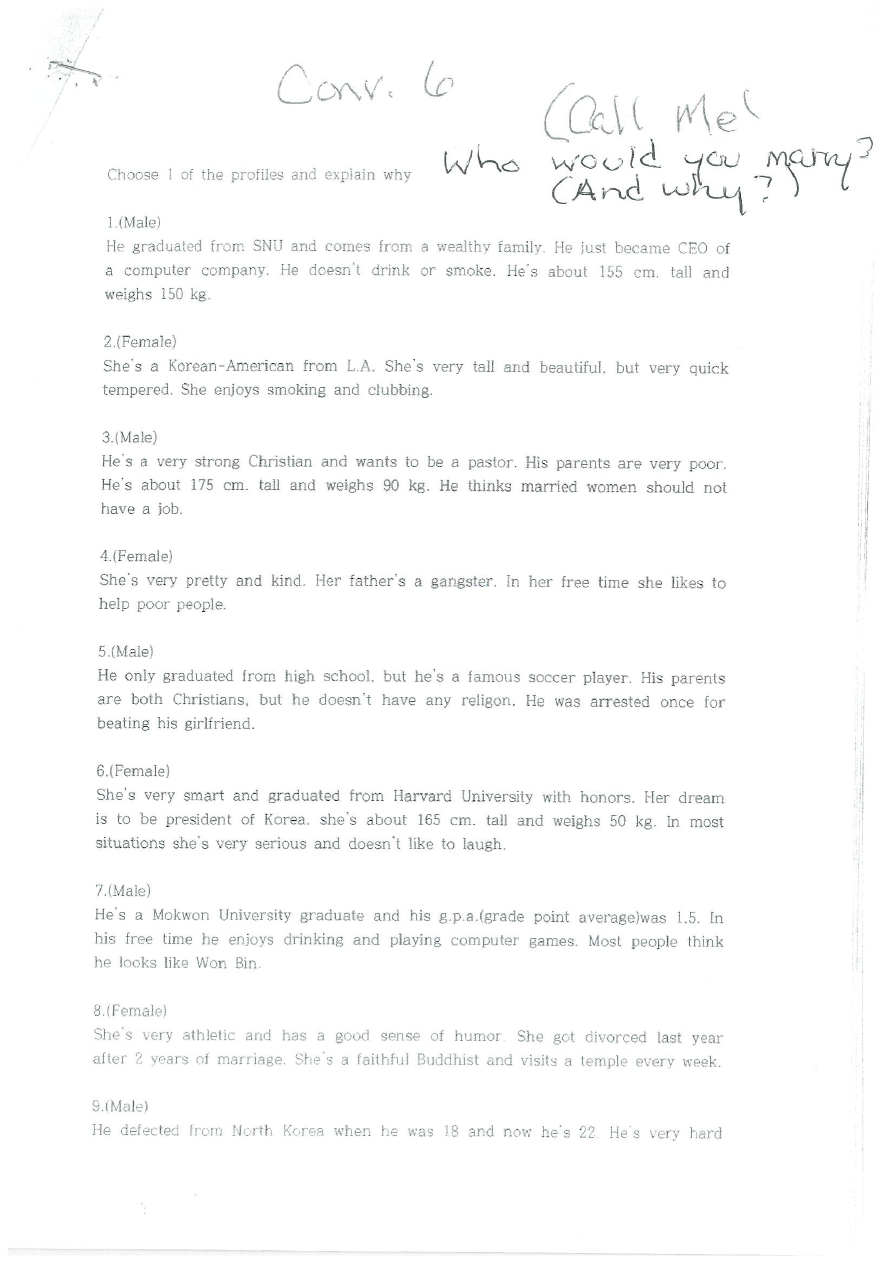 Conv. 6
(Call Me!
Who would you marry?
(And why?)
Choose 1 of the profiles and explain why
1.(Male)
He graduated from SNU and comes from a wealthy family. He just became CEO of
a computer company. He doesn't drink or smoke. He's about 155 cm. tall and
weighs 150 kg.
2.(Female)
She's a Korean-American from L.A. She's very tall and beautiful, but very quick
tempered. She enjoys smoking and clubbing.
3.(Male)
He's a very strong Christian and wants to be a pastor. His parents are very poor.
He's about 175 cm. tall and weighs 90 kg. He thinks married women should not
have a job.
4.(Female)
She's very pretty and kind. Her father's a gangster. In her free time she likes to
help poor people.
5.(Male)
He only graduated from high school, but he's a famous soccer player. His parents
are both Christians, but he doesn't have any religon. He was arrested once for
beating his girlfriend.
6.(Female)
She's very smart and graduated from Harvard University with honors. Her dream
is to be president of Korea. she's about 165 cm. tall and weighs 50 kg. In most
situations she's very serious and doesn't like to laugh.
7.(Male)
He's a Mokwon University graduate and his g.p.a.(grade point average)was 1.5. In
his free time he enjoys drinking and playing computer games. Most people think
he looks like Won Bin.
8.(Female)
She's very athletic and has a good sense of humor. She got divorced last year
after 2 years of marriage. She's a faithful Buddhist and visits a temple every week.
9.(Male)
He defected from North Korea when he was 18 and now he's 22. He's very hard